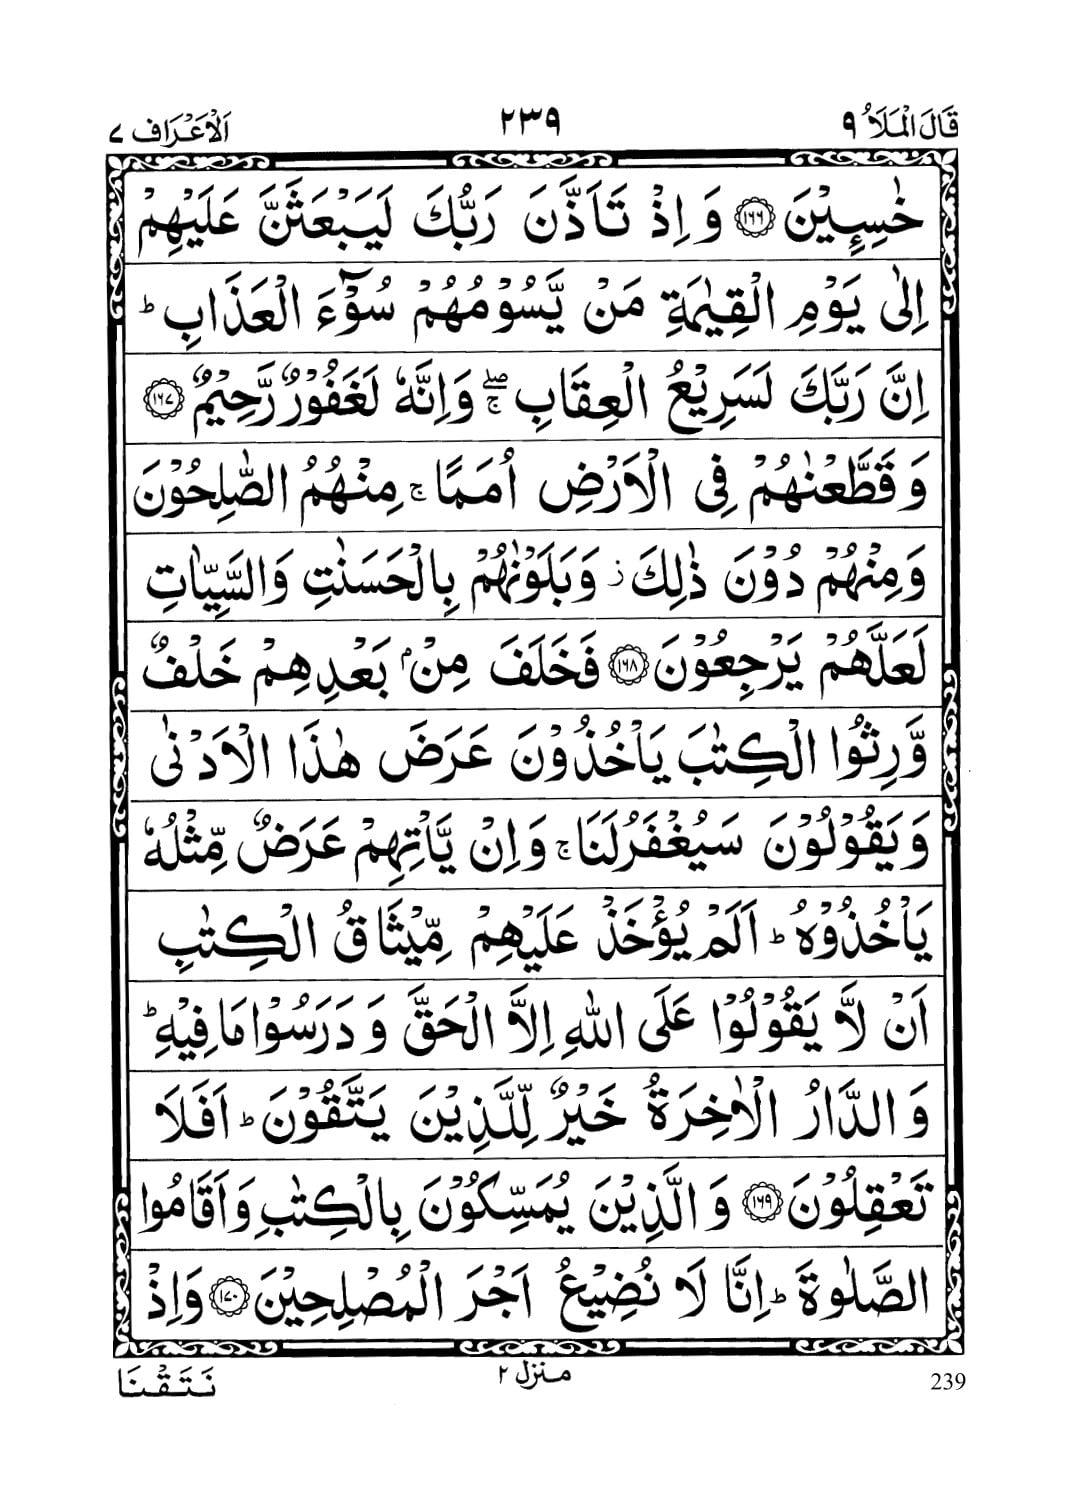 قَالَ الْمَلَاُ ۹ ۲۳۹ اَلْاَعْرَاف ۷
خٰسِـِٕيْنَ ﴿۱۶۶﴾ وَ اِذْ تَاَذَّنَ رَبُّكَ لَيَبْعَثَنَّ عَلَيْهِمْ
اِلٰى يَوْمِ الْقِيٰمَةِ مَنْ يَّسُوْمُهُمْ سُوْٓءَ الْعَذَابِ ؕ
اِنَّ رَبَّكَ لَسَرِيْعُ الْعِقَابِ ۖۚ وَاِنَّهٗ لَغَفُوْرٌ رَّحِيْمٌ ﴿۱۶۷﴾
وَ قَطَّعْنٰهُمْ فِى الْاَرْضِ اُمَمًا ۚ مِنْهُمُ الصّٰلِحُوْنَ
وَمِنْهُمْ دُوْنَ ذٰلِكَ ز وَبَلَوْنٰهُمْ بِالْحَسَنٰتِ وَالسَّيِّاٰتِ
لَعَلَّهُمْ يَرْجِعُوْنَ ﴿۱۶۸﴾ فَخَلَفَ مِنْۢ بَعْدِهِمْ خَلْفٌ
وَّرِثُوا الْكِتٰبَ يَاْخُذُوْنَ عَرَضَ هٰذَا الْاَدْنٰى
وَيَقُوْلُوْنَ سَيُغْفَرُلَنَا ۚ وَاِنْ يَّاْتِهِمْ عَرَضٌ مِّثْلُهٗ
يَاْخُذُوْهُ ؕ اَلَمْ يُؤْخَذْ عَلَيْهِمْ مِّيْثَاقُ الْكِتٰبِ
اَنْ لَّا يَقُوْلُوْا عَلَى اللّٰهِ اِلَّا الْحَقَّ وَ دَرَسُوْا مَا فِيْهِ ؕ
وَ الدَّارُ الْاٰخِرَةُ خَيْرٌ لِّلَّذِيْنَ يَتَّقُوْنَ ؕ اَفَلَا
تَعْقِلُوْنَ ﴿۱۶۹﴾ وَ الَّذِيْنَ يُمَسِّكُوْنَ بِالْكِتٰبِ وَاَقَامُوا
الصَّلٰوةَ ؕ اِنَّا لَا نُضِيْعُ اَجْرَ الْمُصْلِحِيْنَ ﴿۱۷۰﴾ وَاِذْ
239 منزل ۲ نَتَقْنَا